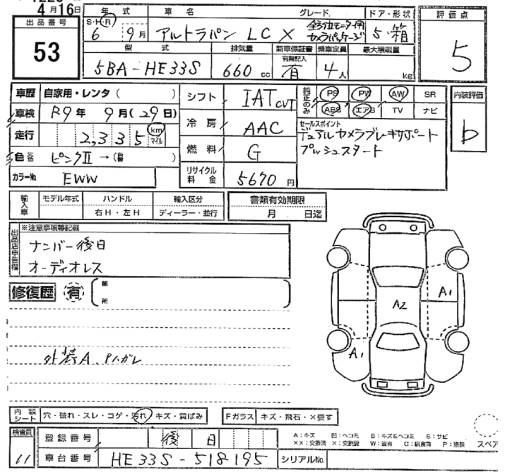 4月16日
出品番号
53
年式 車名 グレード ドア・形状
S・H・R
6年 9月 アルトラパン LC X 全方位モニター用カメラパッケージ 5・箱
型式 排気量 新車保証書 乗車定員 最大積載量
有無記入
5BA-HE33S 660cc 有 4人 kg
評価点
5
車歴 自家用・レンタ( )
車検 R9年 9月(29日)
走行 2,335 km マイル
色 ピンクII→(色替 )
カラーNo EWW
シフト IAT CVT
冷房 AAC
燃料 G
リサイクル料金 5670円
純正のみ PS PW AW SR
ABS エアB TV ナビ
セールスポイント
デュアルカメラブレーキサポート
プッシュスタート
内装評価
b
輸入車 モデル年式 ハンドル 輸入区分
右H・左H ディーラー・並行
書類有効期限
月 日迄
※注意事項等記載
ナンバー後日
オーディオレス
修復歴 有 箇所
外装A
A2
A1
A1
内装シート 穴・破れ・スレ・コゲ・汚れ・キズ・黄ばみ
Fガラス キズ・飛石・×要す
検査員
11
登録番号 後日
車台番号 HE33S-518195
シリアルNo.
A:キズ
スペア